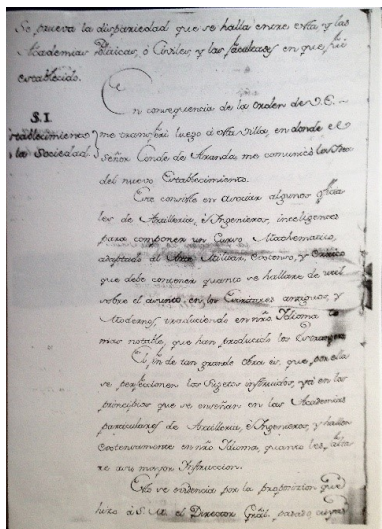 Se prueva la dispariedad que se halla entre esta, y las
Academias Politicas, ó Civiles, y las facultades en que fué
establecido.
En consequencia de la orden de V.E.
§.I. me transferi luego á esta Villa, en donde el
establecimiento señor Conde de Aranda me comunicó la
la Sociedad del nuevo Establecimiento.
Este consiste en asociar algunos oficia-
les de Artilleria, é Ingenieros, inteligentes
para componer un Curso Mathematico,
adaptado al Arte Militar, extenso, y
que debe contener quanto se hallare de util
sobre el asunto, en los Escritores antiguos, y
Modernos, traduciendo en nro Idioma lo
mas notable, que han producido los Estrangeros
El fin de tan grande Obra es, que por ella
se perfeccionen los Sugetos instruidos, ya en los
principios que se enseñan en las Academias
particulares de Artilleria, é Ingenieros, y hallen
extensamente en nro Idioma, quanto les falta-
re a su mayor Instruccion.
Esto se evidencia por la proposicion que
hizo á S.M. el Director Gral. pasado